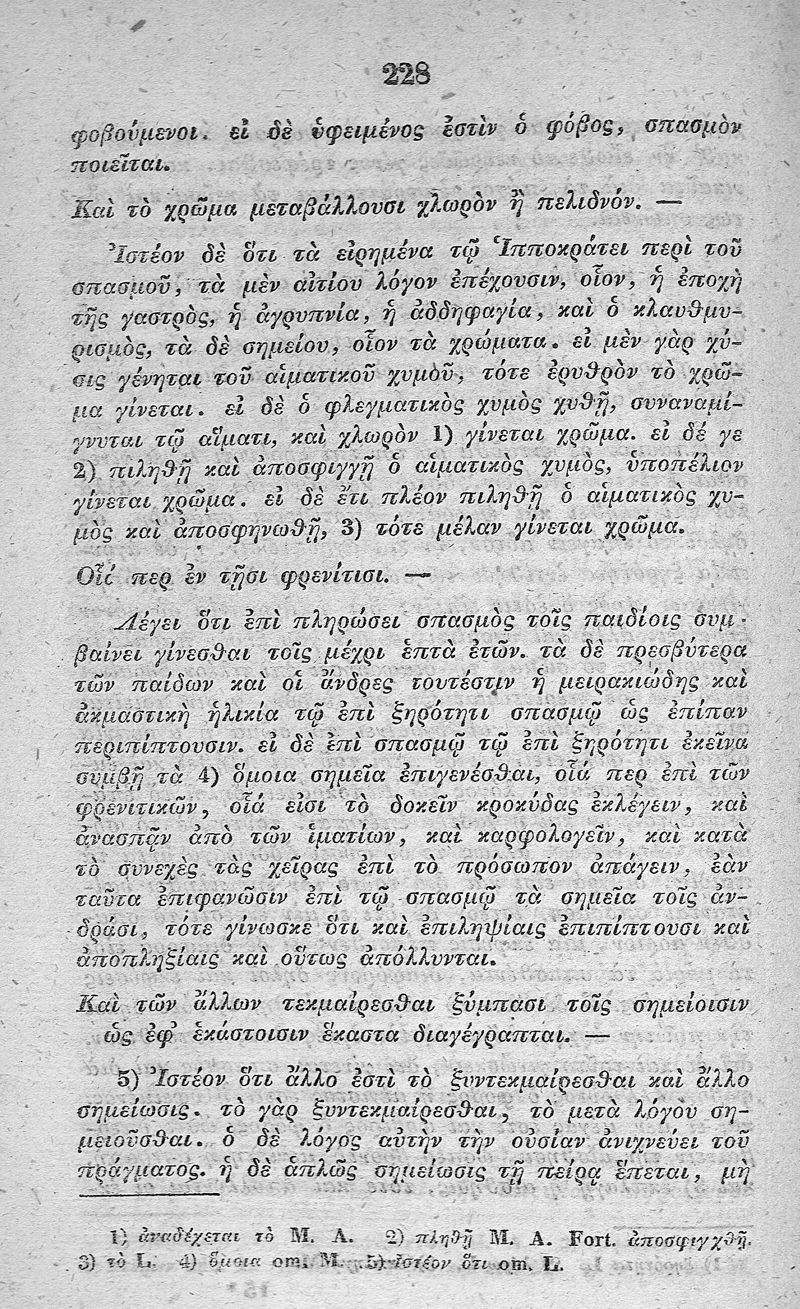 228
φοβούμενοι. εἰ δὲ ὑφειμένος ἐστὶν ὁ φόβος, σπασμὸν
ποιεῖται.
Καὶ τὸ χρῶμα μεταβάλλουσι χλωρὸν ἢ πελιδνόν. —
Ἰστέον δὲ ὅτι τὰ εἰρημένα τῷ Ἱπποκράτει περὶ τοῦ
σπασμοῦ, τὰ μὲν αἰτίου λόγον ἐπέχουσιν, οἷον, ἡ ἐποχὴ
τῆς γαστρὸς, ἡ ἀγρυπνία, ἡ ἀδδηφαγία, καὶ ὁ κλαυθμυ-
ρισμὸς, τὰ δὲ σημείου, οἷον τὰ χρώματα. εἰ μὲν γὰρ χύ-
σις γένηται τοῦ αἱματικοῦ χυμοῦ, τότε ἐρυθρὸν τὸ χρῶ-
μα γίνεται. εἰ δὲ ὁ φλεγματικὸς χυμὸς χυθῇ, συναναμί-
γνυται τῷ αἵματι, καὶ χλωρὸν 1) γίνεται χρῶμα. εἰ δέ γε
2) πιληθῇ καὶ ἀποσφιγγῇ ὁ αἱματικὸς χυμὸς, ὑποπέλιον
γίνεται χρῶμα. εἰ δὲ ἔτι πλέον πιληθῇ ὁ αἱματικὸς χυ-
μὸς καὶ ἀποσφηνωθῇ, 3) τότε μέλαν γίνεται χρῶμα.
Οἷά περ ἐν τῇσι φρενίτισι. —
Λέγει ὅτι ἐπὶ πληρώσει σπασμὸς τοῖς παιδίοις συμ-
βαίνει γίνεσθαι τοῖς μέχρι ἑπτὰ ἐτῶν. τὰ δὲ πρεσβύτερα
τῶν παίδων καὶ οἱ ἄνδρες τουτέστιν ἡ μειρακιώδης καὶ
ἀκμαστικὴ ἡλικία τῷ ἐπὶ ξηρότητι σπασμῷ ὡς ἐπίπαν
περιπίπτουσιν. εἰ δὲ ἐπὶ σπασμῷ τῷ ἐπὶ ξηρότητι ἐκεῖνα
συμβῇ τὰ 4) ὅμοια σημεῖα ἐπιγενέσθαι, οἷά περ ἐπὶ τῶν
φρενιτικῶν, οἷά εἰσι τὸ δοκεῖν κροκύδας ἐκλέγειν, καὶ
ἀνασπᾷν ἀπὸ τῶν ἱματίων, καὶ καρφολογεῖν, καὶ κατὰ
τὸ συνεχὲς τὰς χεῖρας ἐπὶ τὸ πρόσωπον ἀπάγειν, ἐὰν
ταῦτα ἐπιφανῶσιν ἐπὶ τῷ σπασμῷ τὰ σημεῖα τοῖς ἀν-
δράσι, τότε γίνωσκε ὅτι καὶ ἐπιληψίαις ἐπιπίπτουσι καὶ
ἀποπληξίαις καὶ οὕτως ἀπόλλυνται.
Καὶ τῶν ἄλλων τεκμαίρεσθαι ξύμπασι τοῖς σημείοισιν
ὡς ἐφ᾽ ἑκάστοισιν ἕκαστα διαγέγραπται. —
5) Ἰστέον ὅτι ἄλλο ἐστὶ τὸ ξυντεκμαίρεσθαι καὶ ἄλλο
σημείωσις. τὸ γὰρ ξυντεκμαίρεσθαι, τὸ μετὰ λόγου ση-
μειοῦσθαι. ὁ δὲ λόγος αὐτὴν τὴν οὐσίαν ἀνιχνεύει τοῦ
πράγματος. ἡ δὲ ἁπλῶς σημείωσις τῇ πείρᾳ ἕπεται, μὴ
1) ἀναδέχεται τὸ M. A. 2) πληθῇ M. A. Fort. ἀποσφιγχθῇ.
3) τὸ L. 4) ὅμοια om. M. 5) Ἰστέον ὅτι om. L.